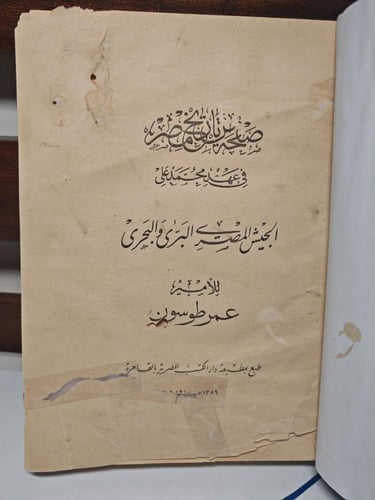 صفحة من تاريخ مصر
في عهد محمد على
الجيش المصرى البرى والبحرى
للأمير
عمر طوسون
طبع بمطبعة دار الكتب المصرية بالقاهرة
١٣٥٩ هـ